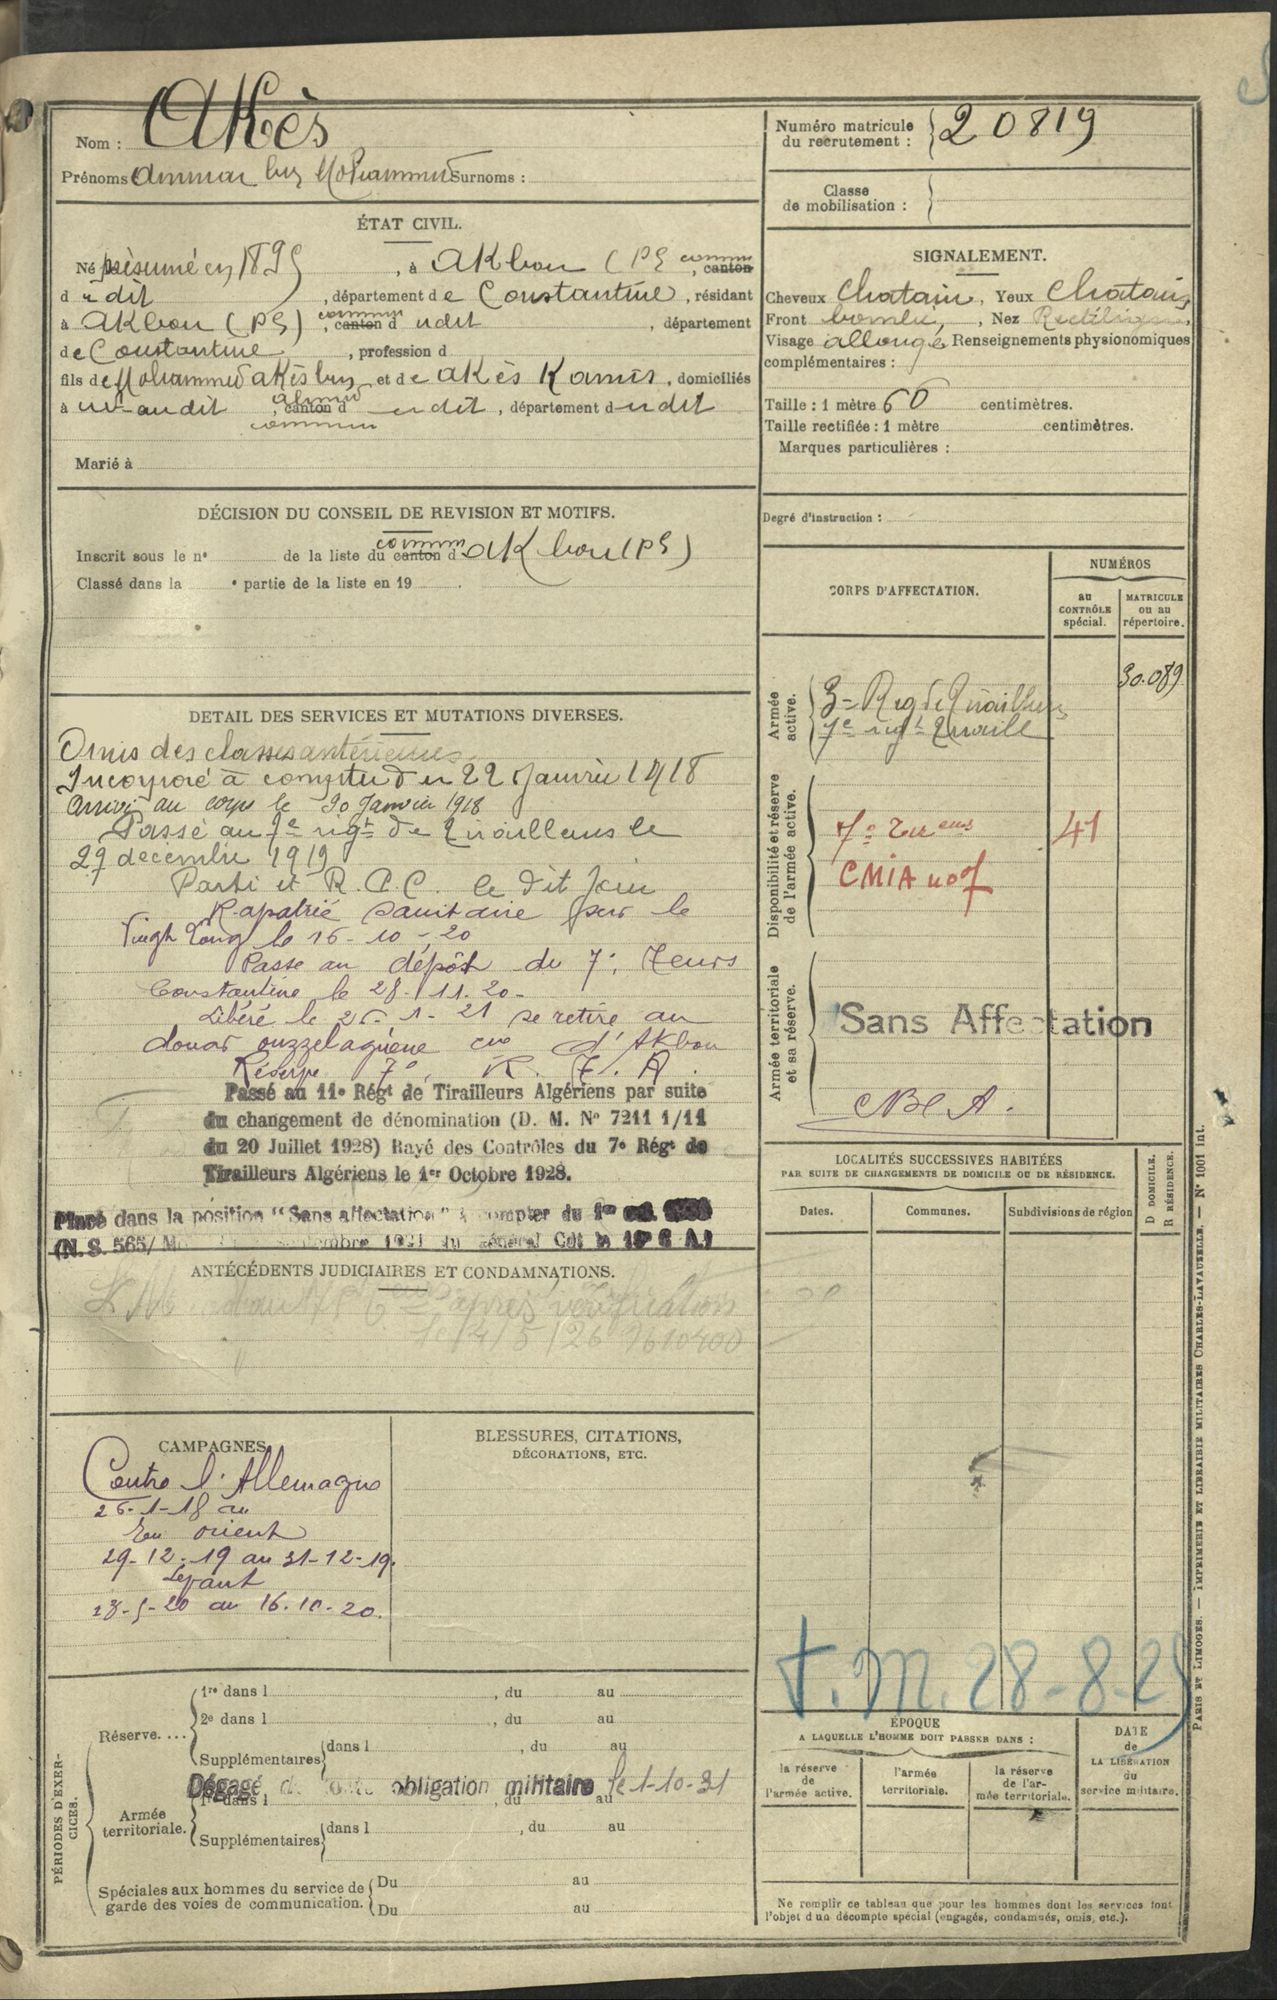 Nom : Akès
Prénoms Ammar ben Mohammed Surnoms :
Numéro matricule du recrutement : 20819
Classe de mobilisation :
ÉTAT CIVIL.
Né présumé en 1895, à Akbou (PE commune, canton
dudit, département de Constantine, résidant
à Akbou (PE) commune, canton dudit, département
de Constantine, profession d
fils de Mohammed Akès ben Ahmed et de Akès Kamis, domiciliés
à audit, canton commune dudit, département dudit
Marié à
SIGNALEMENT.
Cheveux Chatain, Yeux Chatain,
Front bombé, Nez Rectiligne,
Visage allongé Renseignements physionomiques
complémentaires :
Taille : 1 mètre 66 centimètres.
Taille rectifiée : 1 mètre centimètres.
Marques particulières :
Degré d'instruction :
DÉCISION DU CONSEIL DE REVISION ET MOTIFS.
Inscrit sous le n° de la liste du canton commune d'Akbou (PE)
Classé dans la e partie de la liste en 19 .
CORPS D'AFFECTATION.
NUMÉROS
au CONTRÔLE spécial.
MATRICULE ou au répertoire.
Armée active.
3e Reg de Tirailleurs 30.089
7e régt Tiraill
Disponibilité et réserve de l'armée active.
7e Tireurs 41
CMIA
Armée territoriale et sa réserve.
Sans Affectation
DETAIL DES SERVICES ET MUTATIONS DIVERSES.
Omis des classes antérieures
Incorporé à compter du 22 Janvier 1918
arrivé au corps le 30 Janvier 1918
Passé au 7e régt de Tirailleurs le
27 décembre 1919
Parti et R.C.C. le dit jour
Rapatrié sanitaire par le
Vingh Long le 16-10-20
Passe au dépôt du 7e Teurs
Constantine le 28-11-20-
Libéré le 26-1-21 se retire au
douar ouzzelaguene cne d'Akbou
Réserve 7e R.T.A.
Passé au 11e Régt de Tirailleurs Algériens par suite
du changement de dénomination (D. M. N° 7211 1/11
du 20 Juillet 1928) Rayé des Contrôles du 7e Régt de
Tirailleurs Algériens le 1er Octobre 1928.
Placé dans la position "Sans affectation" à compter du 1er
(N. S. 565/ du général Cdt le 19e C A.)
ANTÉCÉDENTS JUDICIAIRES ET CONDAMNATIONS.
après vérification
le 14/5/26
LOCALITÉS SUCCESSIVES HABITÉES
PAR SUITE DE CHANGEMENTS DE DOMICILE OU DE RÉSIDENCE.
Dates.
Communes.
Subdivisions de région
D DOMICILE.
R RÉSIDENCE.
CAMPAGNES
Contre l'Allemagne
26-1-18 au
En orient
29-12-19 au 31-12-19.
Levant
au 16.10-20.
BLESSURES, CITATIONS,
DÉCORATIONS, ETC.
PÉRIODES D'EXERCICES.
Réserve....
1re dans l , du au
2e dans l , du au
Supplémentaires dans l , du au
Dégagé de toute obligation militaire le 1-10-31
Armée territoriale.
1re dans l , du au
Supplémentaires dans l , du au
Spéciales aux hommes du service de garde des voies de communication.
Du au
Du au
ÉPOQUE
A LAQUELLE L'HOMME DOIT PASSER DANS :
la réserve de l'armée active.
l'armée territoriale.
la réserve de l'armée territoriale.
DATE de LA LIBÉRATION du service militaire.
Ne remplir ce tableau que pour les hommes dont les services font
l'objet d'un décompte spécial (engagés, condamnés, omis, etc.).
PARIS ET LIMOGES. — IMPRIMERIE ET LIBRAIRIE MILITAIRES CHARLES-LAVAUZELLE. — N° 1001 int.